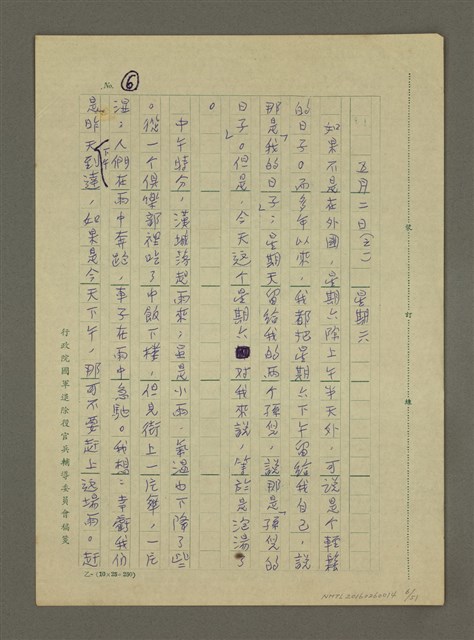 No. 6
五月二日(之一) 星期六
如果不是在外國,星期六除上午半天外,可說是个輕鬆
的日子。而多年以來,我都把星期六下午留給我自己,說
那是「我的日子」;星期天留給我的兩个孫兒,說那是「孫兒的
日子」。但是,今天這个星期六對我來說,等於是泡湯了
。
中午時分,漢城落起雨來,虽是小雨,氣溫也下降了些
。從一个俱樂部裡吃了中飯下樓,但見街上一片傘,一片
濕;人們在雨中奔跑,車子在雨中急馳。我想:幸虧我們
是昨天下午到達,如果是今天下午,那可不要赶上這場雨。赶
行政院國軍退除役官兵輔導委員會稿箋
乙-(19×25=250)
裝 訂 線
NMTL20060260014 6/21